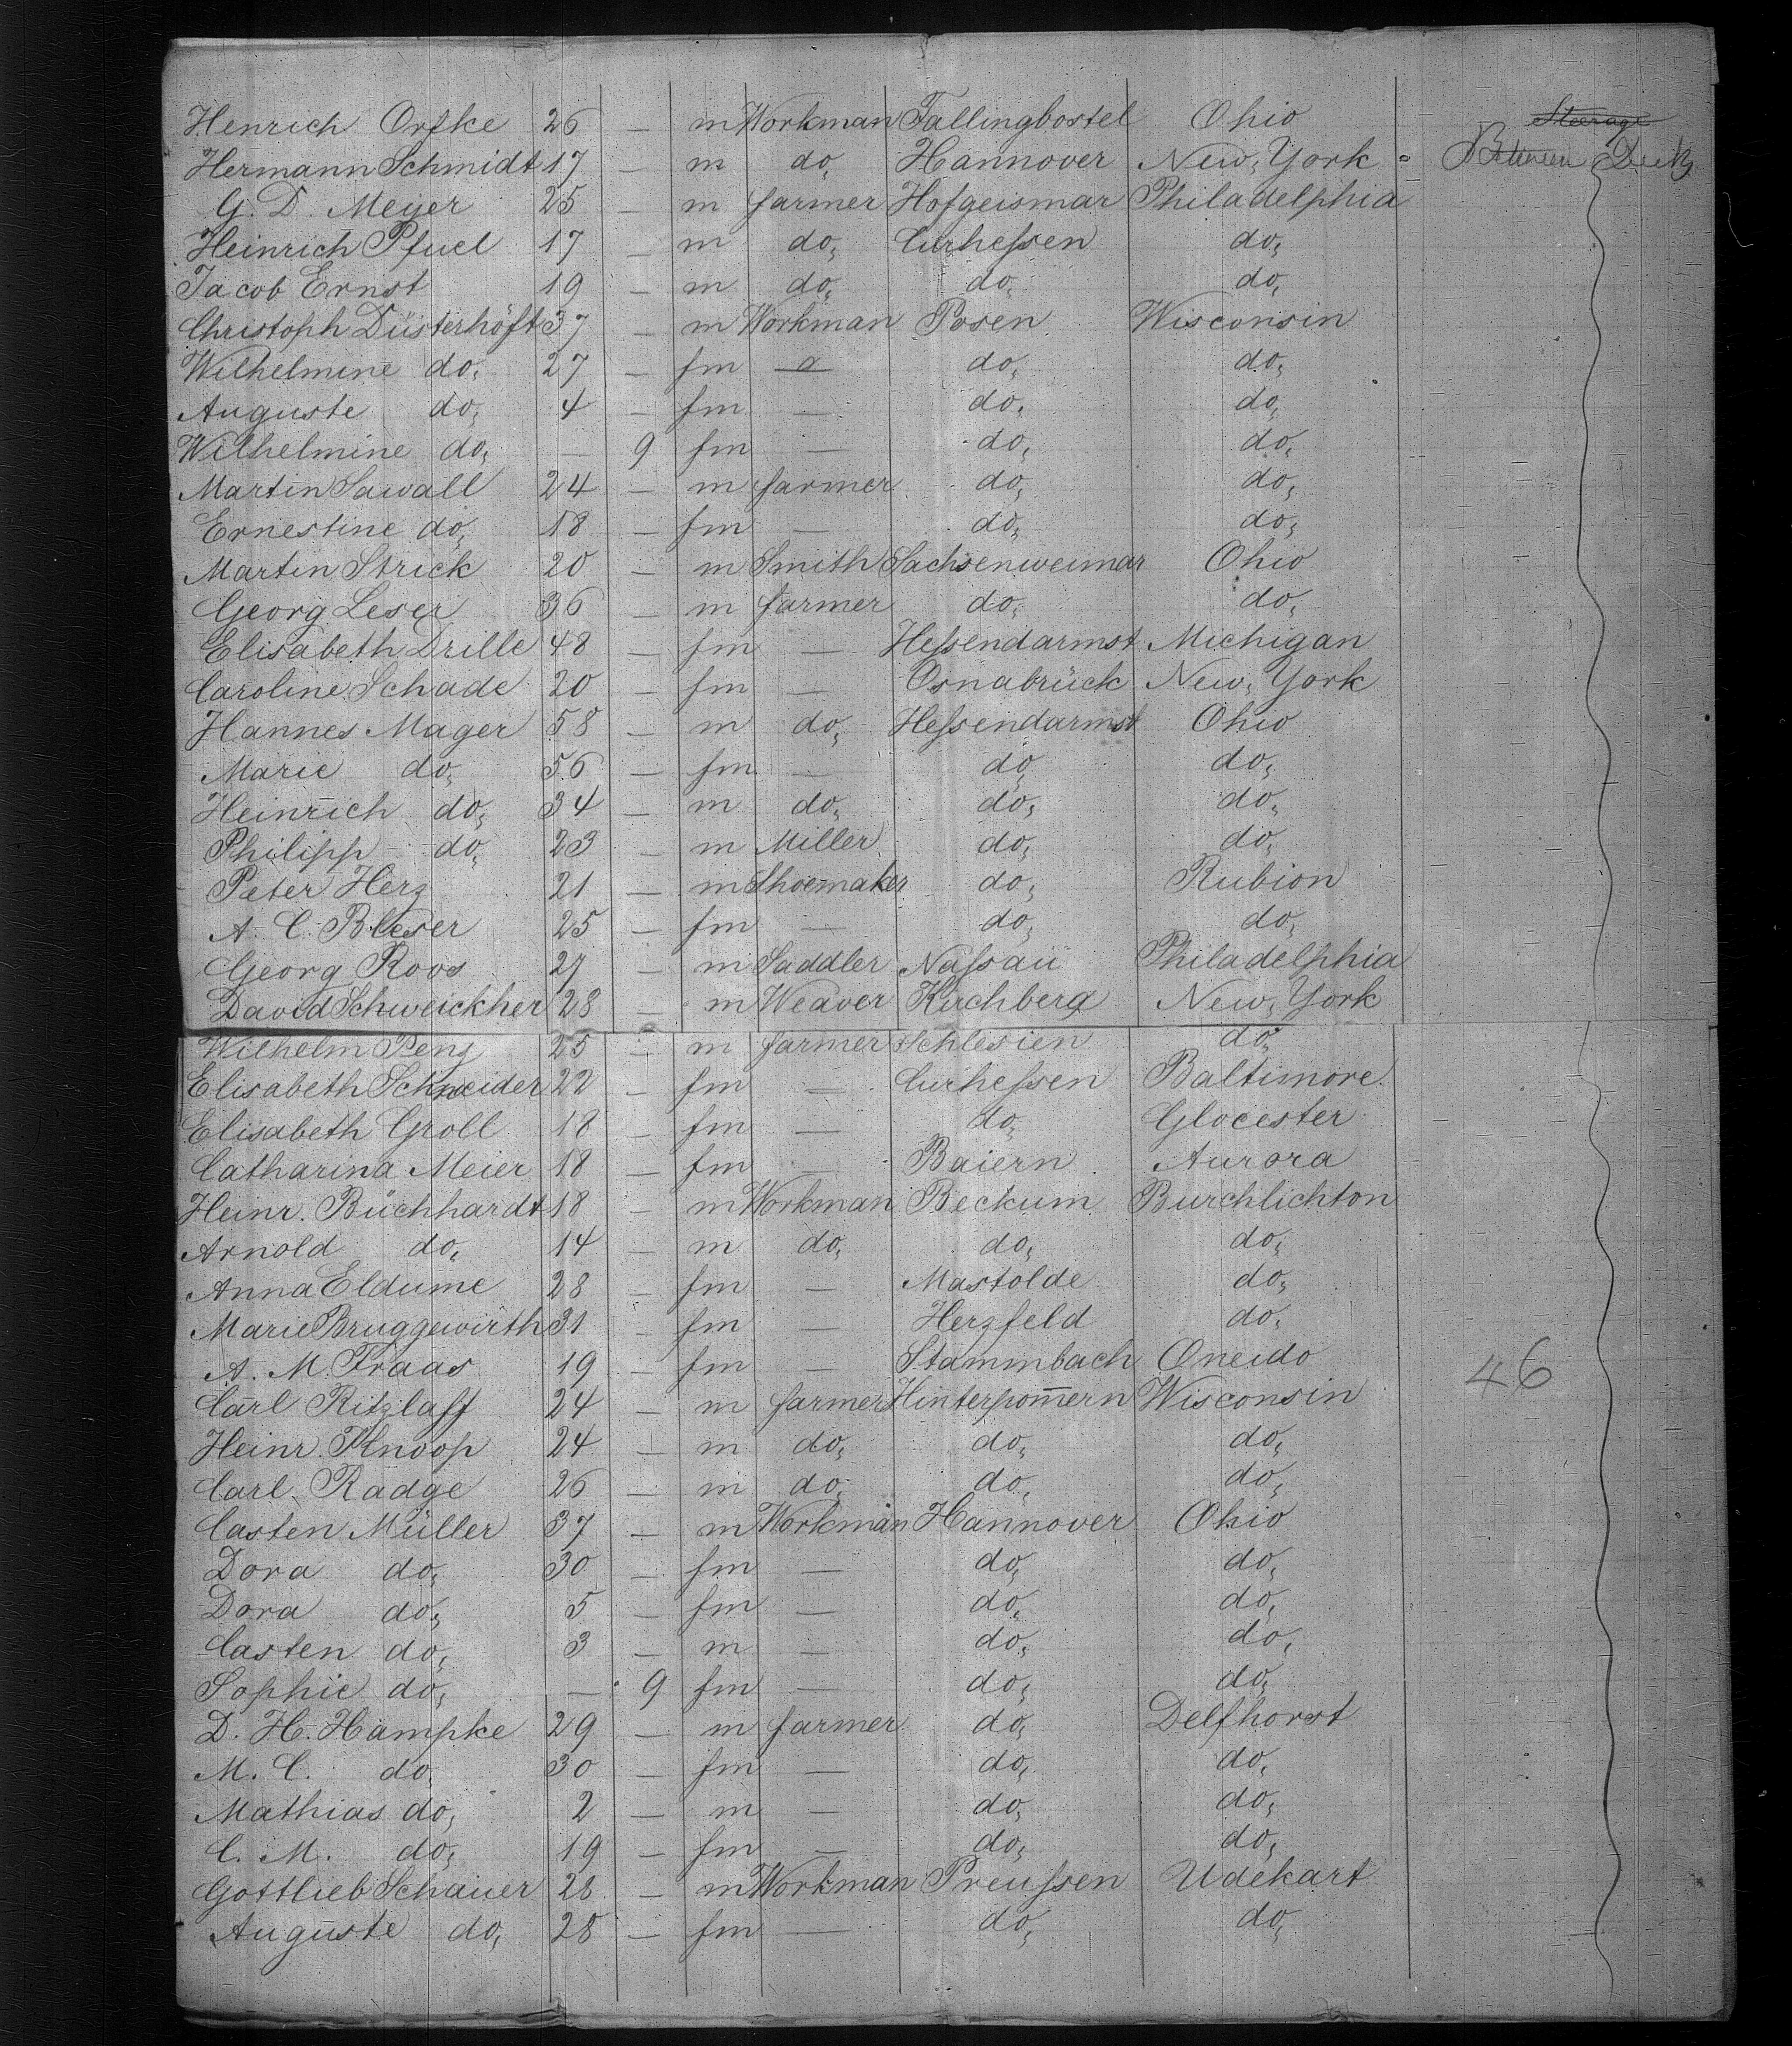 Henrich Orfke 26 — m Workman Fallingbostel Ohio ~~Steerage~~
Hermann Schmidt 17 — m do, Hannover New, York = Between Deck
G. D. Meyer 25 — m farmer Hofgeismar Philadelphia
Heinrich Pfuel 17 — m do, Curheſsen do,
Jacob Ernst 19 — m do, do, do,
Christoph Düsterhöft 37 — m Workman Posen Wisconsin
Wilhelmine do, 27 — fm — do, do,
Auguste do, 4 — fm — do, do,
Wilhelmine do, — 9 fm — do, do,
Martin Sawall 24 — m farmer do, do,
Ernestine do, 18 — fm — do, do,
Martin Strick 20 — m Smith Sachsenweimar Ohio
Georg Leser 36 — m farmer do, do,
Elisabeth Drille 48 — fm — Heſsendarmst Michigan
Caroline Schade 20 — fm — Osnabrück New, York
Hannes Mager 58 — m do, Heſsendarmst Ohio
Marie do, 56 — fm — do, do,
Heinrich do, 34 — m do, do, do,
Philipp do, 23 — m Miller do, do,
Peter Herz 21 — m Shoemaker do, Rubion
A. C. Bleser 25 — fm — do, do,
Georg Roos 27 — m Saddler Naſsau Philadelphia
David Schweickher 28 — m Weaver Kirchberg New, York
Wilhelm Penz 25 — m farmer Schlesien do,
Elisabeth Schneider 22 — fm — Curheſsen Baltimore
Elisabeth Groll 18 — fm — do, Glocester
Catharina Meier 18 — fm — Baiern Aurora
Heinr. Buchhardt 18 — m Workman Beckum Burchlichton
Arnold do, 14 — m do, do, do,
Anna Eldume 28 — fm — Mastolde do,
Marie Bruggewirth 31 — fm — Herzfeld do,
A. M. Fraas 19 — fm — Stammbach Oneido 46
Carl Ritzlaff 24 — m farmer Hinterpom̄ern Wisconsin
Heinr. Knoop 24 — m do, do, do,
Carl Radge 26 — m do, do, do,
Casten Müller 37 — m Workman Hannover Ohio
Dora do, 30 — fm — do, do,
Dora do, 5 — fm — do, do,
Casten do, 3 — m — do, do,
Sophie do, — 9 fm — do, do,
D. H. Hampke 29 — m farmer do, Delfhorst
M. C. do, 30 — fm — do, do,
Mathias do, 2 — m — do, do,
C. M. do, 19 — fm — do, do,
Gottlieb Schauer 28 — m Workman Preuſsen Udekart
Auguste do, 28 — fm — do, do,